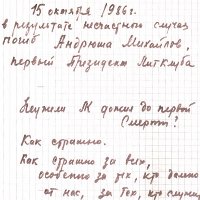 15 октября 1986 г.
в результате несчастного случая
погиб Андрюша Михайлов,
первый Президент Литклуба
Неужели Я дожил до первой
Смерти?
Как страшно.
Как страшно за всех,
особенно за тех, кто далеко
от нас, за тех, кто служит